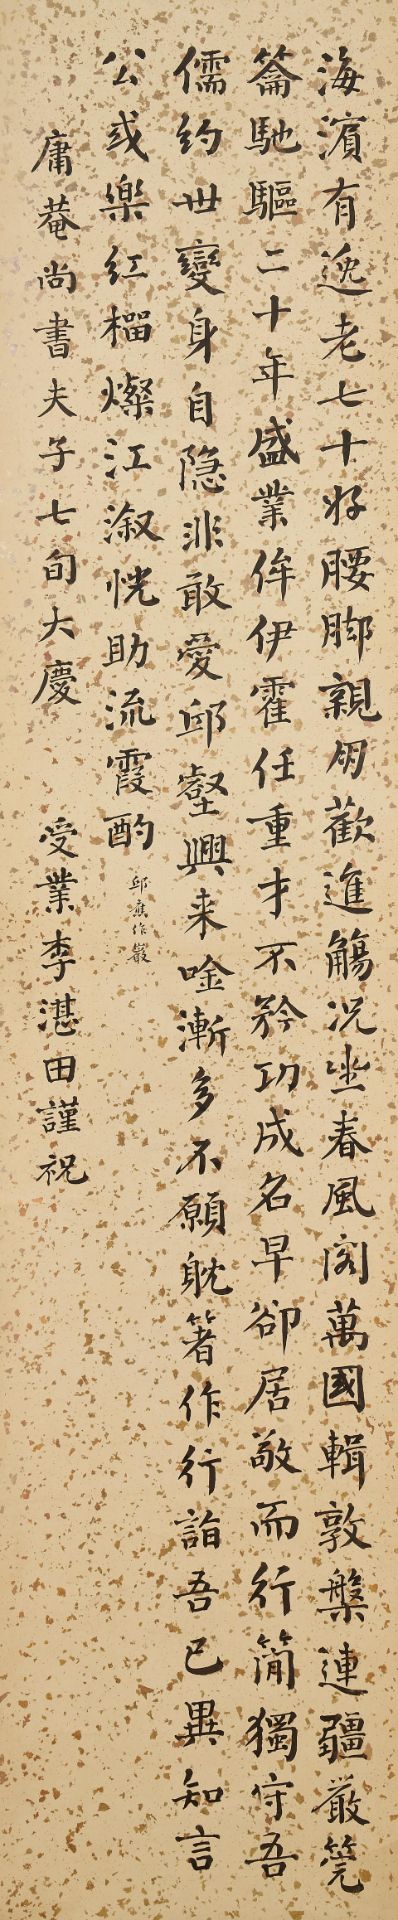 海濱有逸老七十好腰脚親朋歡進觴況坐春風閣萬國輯敦槃連疆嚴筦
籥馳驅二十年盛業侔伊霍任重才不矜功成名早卻居敬而行簡獨守吾
儒約世變身自隐非敢愛邱壑興来唫漸多不願躭箸作行詣吾已異知言
公或樂红榴燦江溆恍助流霞酌
邱應作嚴
庸菴尚書夫子七旬大慶
受業李湛田謹祝